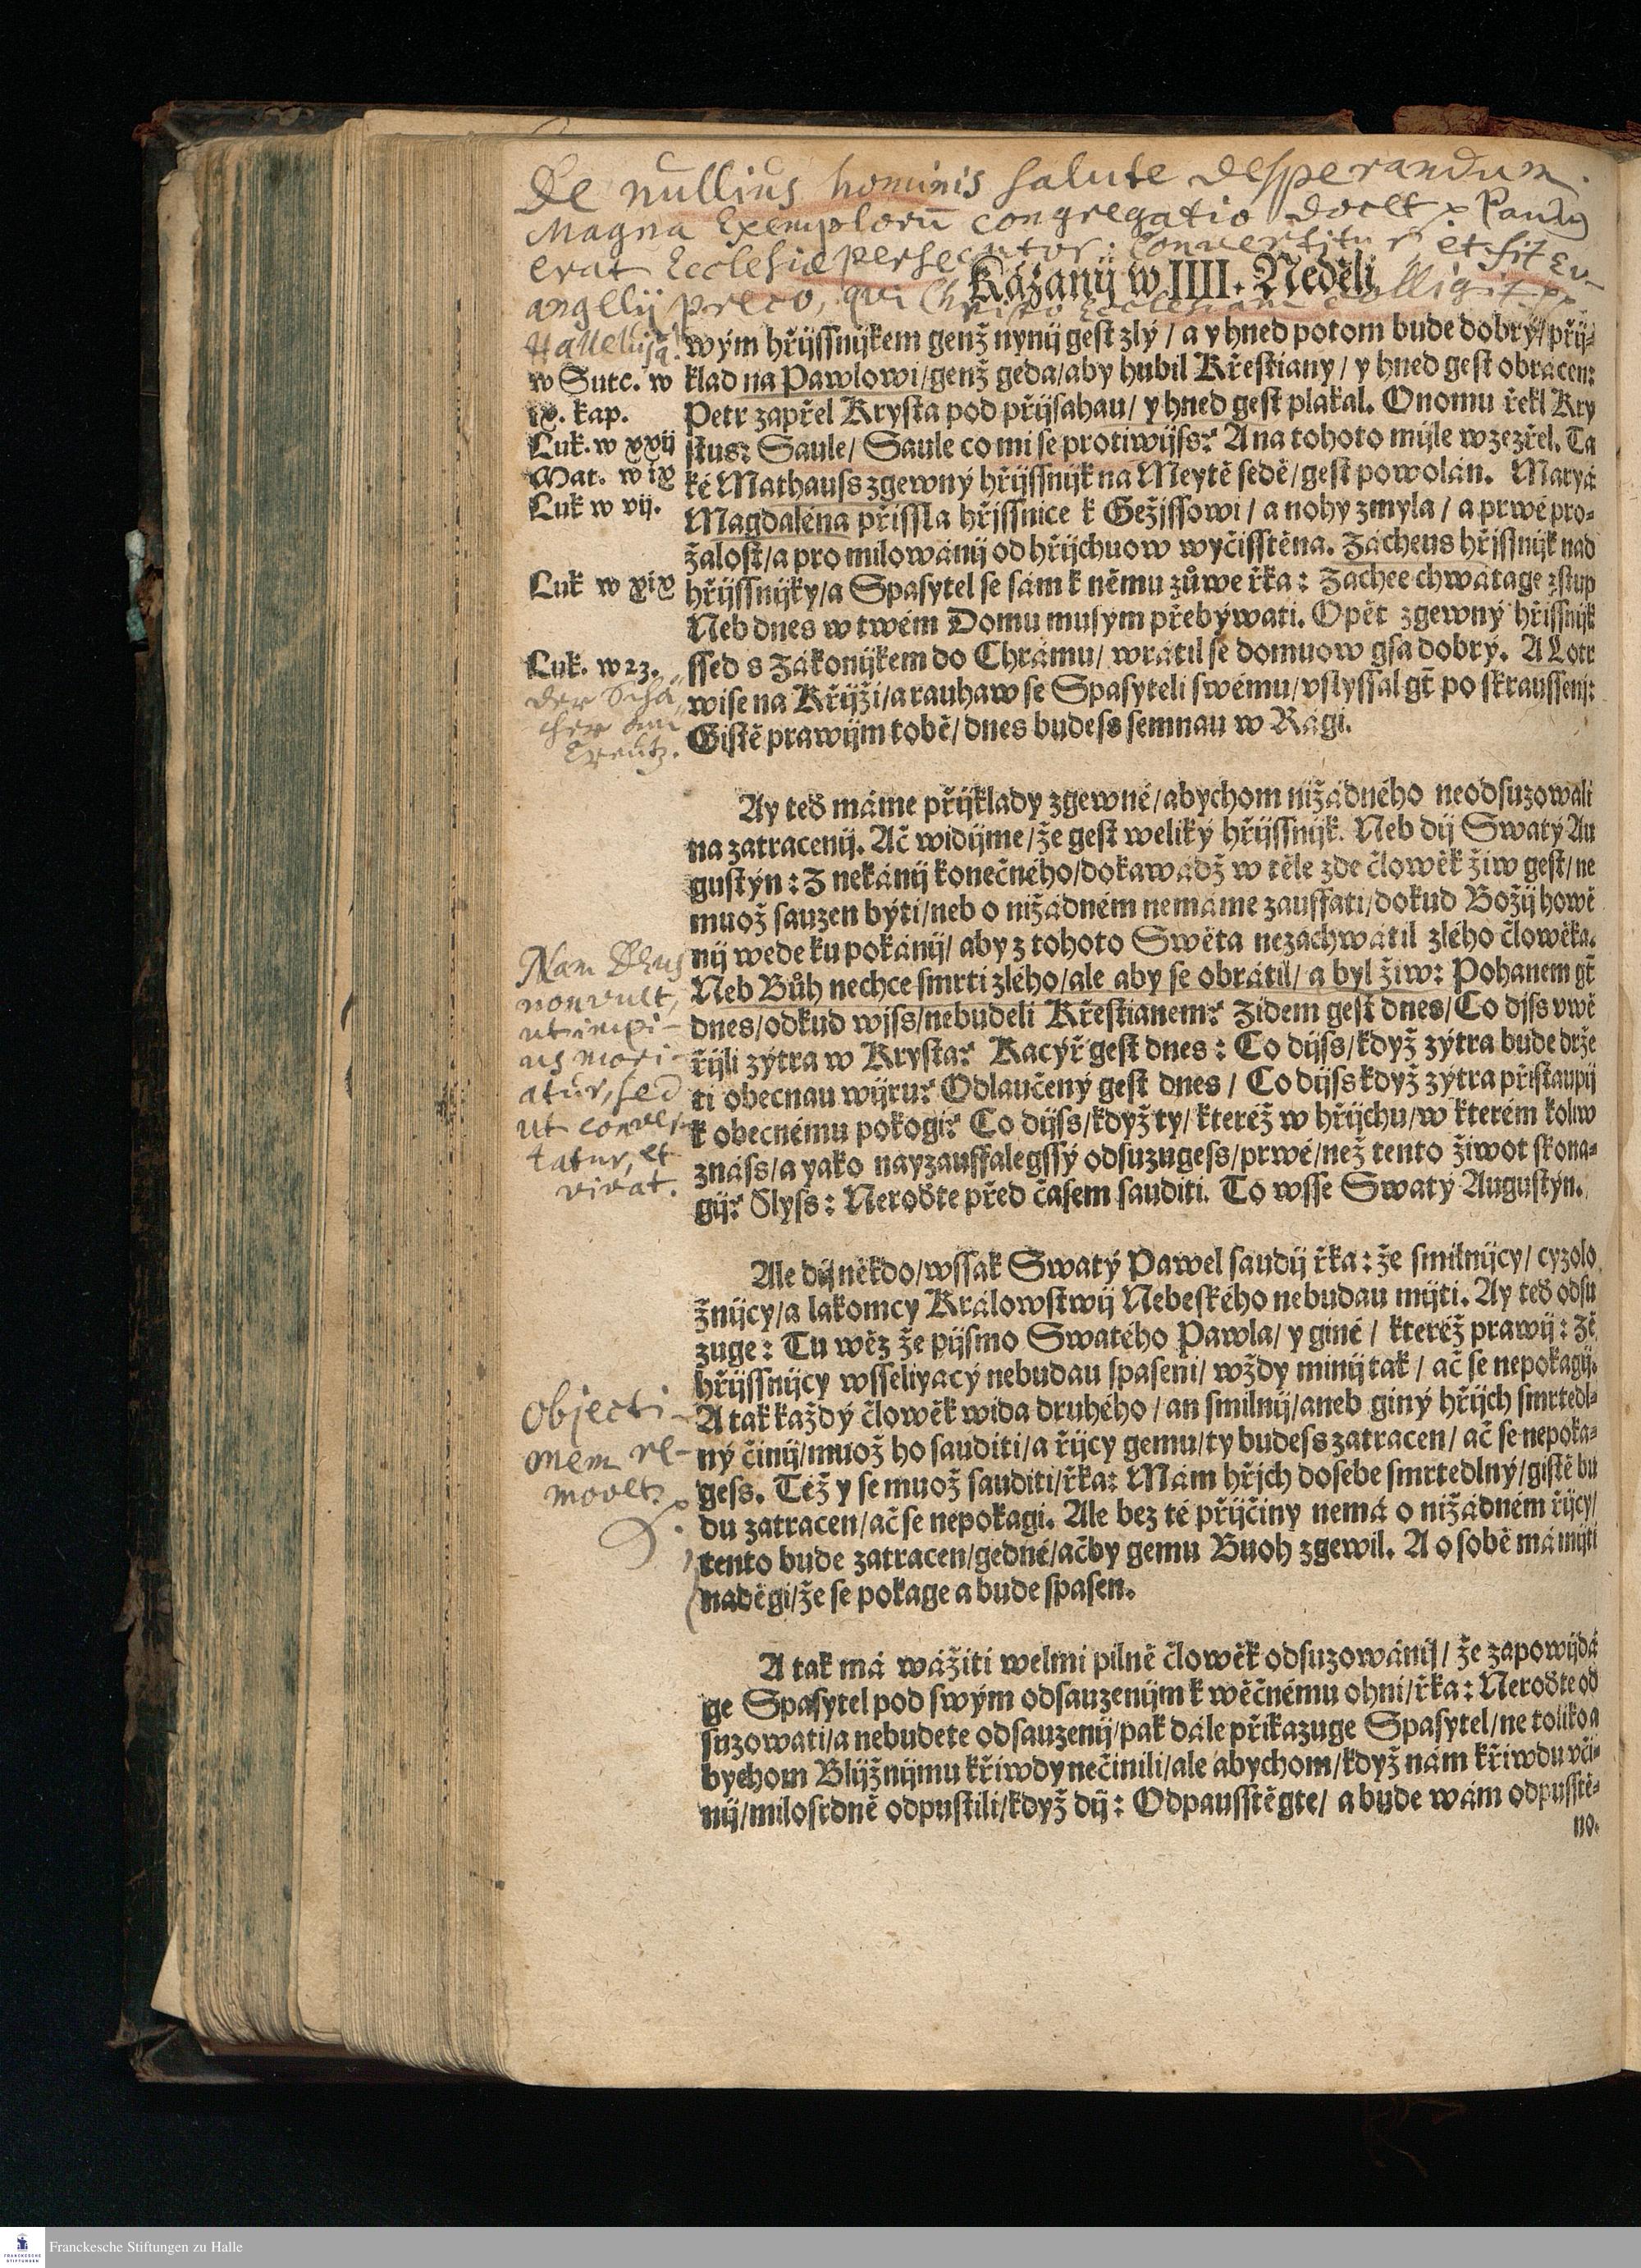 De nullius hominis salute desperandum.
Magna Exemplorū congregatio docet Paulus
erat Ecclesiæ persecutor: Convertitur, et fit Ev-
angelij preco, qvi Christo Ecclesiam colligit
Kázanij w IIII. Neděli
Hallelujā.
wým hřijssnijkem genž nynij gest zlý / a y hned potom bude dobrý / přij-
w Sutc. w
klad na Pawlowi / genž geda / aby hubil Křestiany / y hned gest obrácen:
ix. kap.
Petr zapřel Krysta pod přijsahau / y hned gest plakal. Onomu řekl Kry
Luk. w xxij
stus: Saule / Saule co mi se protiwijss? A na tohoto mijle wzezřel. Ta
Mat. w ix
ké Mathauss zgewný hřijssnijk na Meytě sedě / gest powolán. Maryá
Luk w vij.
Magdaléna přissla hřjssnice k Gežjssowi / a nohy zmyla / a prwé pro-
žalost / a pro milowánij od hřijchuow wyčisstěna. Zácheus hřjssnijk nad
Luk w xix
hřijssnijky / a Spasytel se sám k němu zůwe řka: Zachee chwátage zstup
Neb dnes w twém Domu musým přebýwati. Opět zgewný hřissnijk
Luk. w 23.
ssed s Zákonijkem do Chrámu / wrátil se domuow gsa dobrý. A Lotr
der Schä-
cher am
Creutz.
wise na Křijži / a rauhaw se Spasyteli swému / vslyssal gt̃ po skraussenj:
Gistě prawijm tobě / dnes budess semnau w Ragi.
Ay teď máme přijklady zgewné / abychom nižádného neodsuzowali
na zatracenij. Ač widijme / že gest weliký hřijssnijk. Neb dij Swatý Au
gustýn: Z nekánij konečného / dokawádž w těle zde člowěk žiw gest / ne
muož sauzen býti / neb o nižádném nemáme zauffati / dokud Božij howě
nij wede ku pokánij / aby z tohoto Swěta nezachwátil zlého člowěka.
Nam Deus
non vult,
ut impi-
us mori-
atur, sed
ut conver-
tatur, et
vivat.
Neb Bůh nechce smrti zlého / ale aby se obrátil / a byl žiw: Pohanem gt̃
dnes / odkud wjss / nebudeli Křestianem? Židem gest dnes / Co djss vwě
řijli zýtra w Krysta? Kacýř gest dnes: Co dijss / když zýtra bude drže
ti obecnau wijru? Odlaučený gest dnes / Co dijss když zýtra přistaupij
k obecnému pokogi? Co dijss / když ty / kteréž w hřijchu / w kterém koliw
znáss / a yako nayzauffalegssý odsuzugess / prwé / než tento žiwot skona-
gij? Slyss: Neroďte před časem sauditi. To wsse Swatý Augustýn.
Ale dij někdo / wssak Swatý Pawel saudij řka: že smilnijcy / cyzolo
žnijcy / a lakomcy Králowstwij Nebeského nebudau mijti. Ay teď odsu
zuge: Tu wěz že pijsmo Swatého Pawla / y giné / kteréž prawij: Že
hřijssnijcy wsseliyacý nebudau spaseni / wždy minij tak / ač se nepokagij.
Objecti-
onem re-
movet
A tak každý člowěk wida druhého / an smilnij / aneb giný hřijch smrtedl-
ný činij / muož ho sauditi / a řijcy gemu / ty budess zatracen / ač se nepoka-
gess. Též y se muož sauditi / řka: Mám hřjch do sebe smrtedlný / gistě bu
du zatracen / ač se nepokagi. Ale bez té přijčiny nemá o nižádném řijcy /
tento bude zatracen / gedné / ačby gemu Buoh zgewil. A o sobě má mijti
naděgi / že se pokage a bude spasen.
A tak má wážiti welmi pilně člowěk odsuzowánij / že zapowijdá
ge Spasytel pod swým odsauzenijm k wěčnému ohni / řka: Neroďte od
suzowati / a nebudete odsauzenij / pak dále přikazuge Spasytel / ne toliko a
bychom Blijžnijmu křiwdy nečinili / ale abychom / když nám křiwdu vči-
nij / milosrdně odpustili / když dij: Odpausstěgte / a bude wám odpusstě-
no.
Franckesche Stiftungen zu Halle